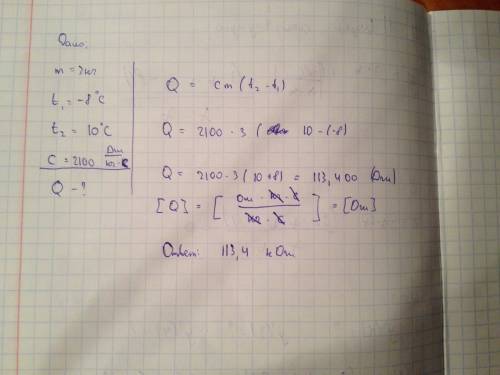 Дано:
m = 3кг
t₁ = -8°C
t₂ = 10°C
C = 2100 Дж/кг·°C
Q - ?
Q = cm (t₂ - t₁)
Q = 2100 · 3 ( 10 - (-8)
Q = 2100 · 3 ( 10 + 8) = 113,400 (Дж)
[Q] = [ Дж · кг · °C / кг · °C ] = [Дж]
Ответ: 113,4 кДж